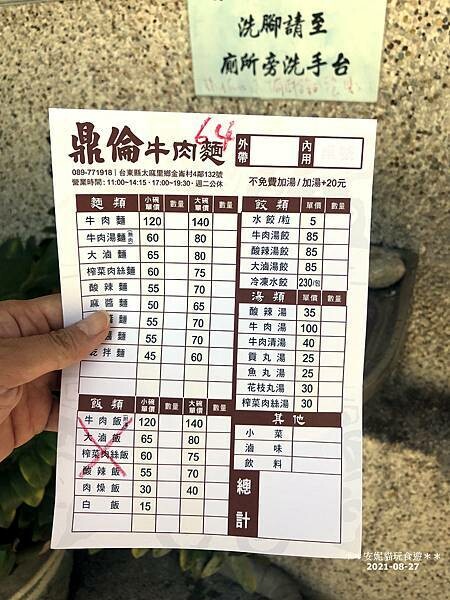 洗腳請至
廁所旁洗手台
鼎倫牛肉麵
64
外帶
內用
089-771918 | 台東縣太麻里鄉金崙村4鄰132號
營業時間:11:00~14:15‧17:00~19:30‧週二公休
不免費加湯/加湯+20元
麵類 小碗單價 數量 大碗單價 數量
牛肉麵 120 140
牛肉湯麵 60 80
大滷麵 65 80
榨菜肉絲麵 60 75
酸辣麵 55 70
麻醬麵 50 65
麵 55 70
麵 55 70
乾拌麵 45 60
飯類 小碗單價 數量 大碗單價 數量
牛肉飯 120 140
大滷飯 65 80
榨菜肉絲飯 60 75
酸辣飯 55 70
肉燥飯 30 40
白飯 15
餃類 單價 數量
水餃/粒 5
牛肉湯餃 85
酸辣湯餃 85
大滷湯餃 85
冷凍水餃 230/包
湯類 單價 數量
酸辣湯 35
牛肉湯 100
牛肉清湯 40
貢丸湯 25
魚丸湯 25
花枝丸湯 30
榨菜肉絲湯 30
其他
小菜
滷味
飲料
總計
安妮貓玩食遊**
2021-08-27